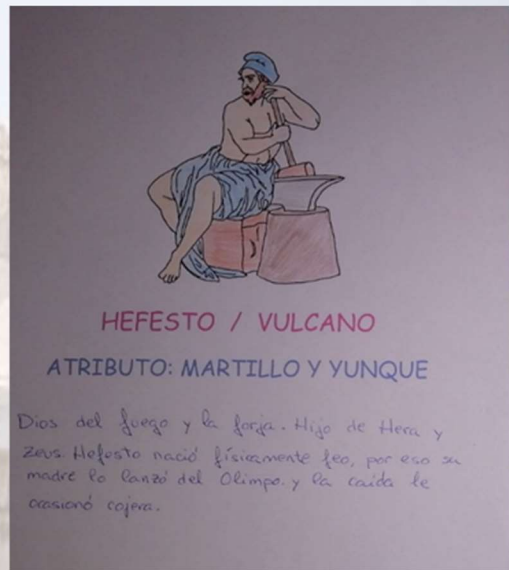 HEFESTO / VULCANO
ATRIBUTO: MARTILLO Y YUNQUE
Dios del fuego y la forja. Hijo de Hera y
Zeus. Hefesto nació físicamente feo, por eso su
madre lo lanzó del Olimpo. y la caída le
ocasionó cojera.